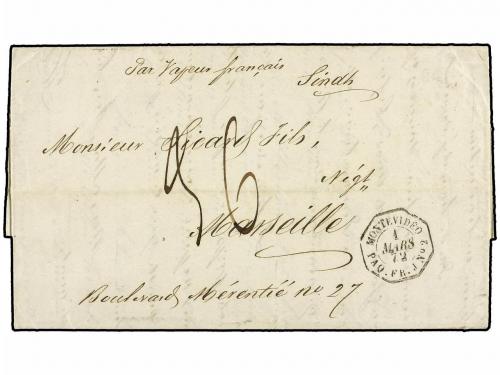 Par Vapeur français
Sindh
Monsieur Sicard Fils,
Négt
Marseille
Boulevard Mérentié no. 27
MONTEVIDEO
1
MARS
72
PAQ. FR. J No 2